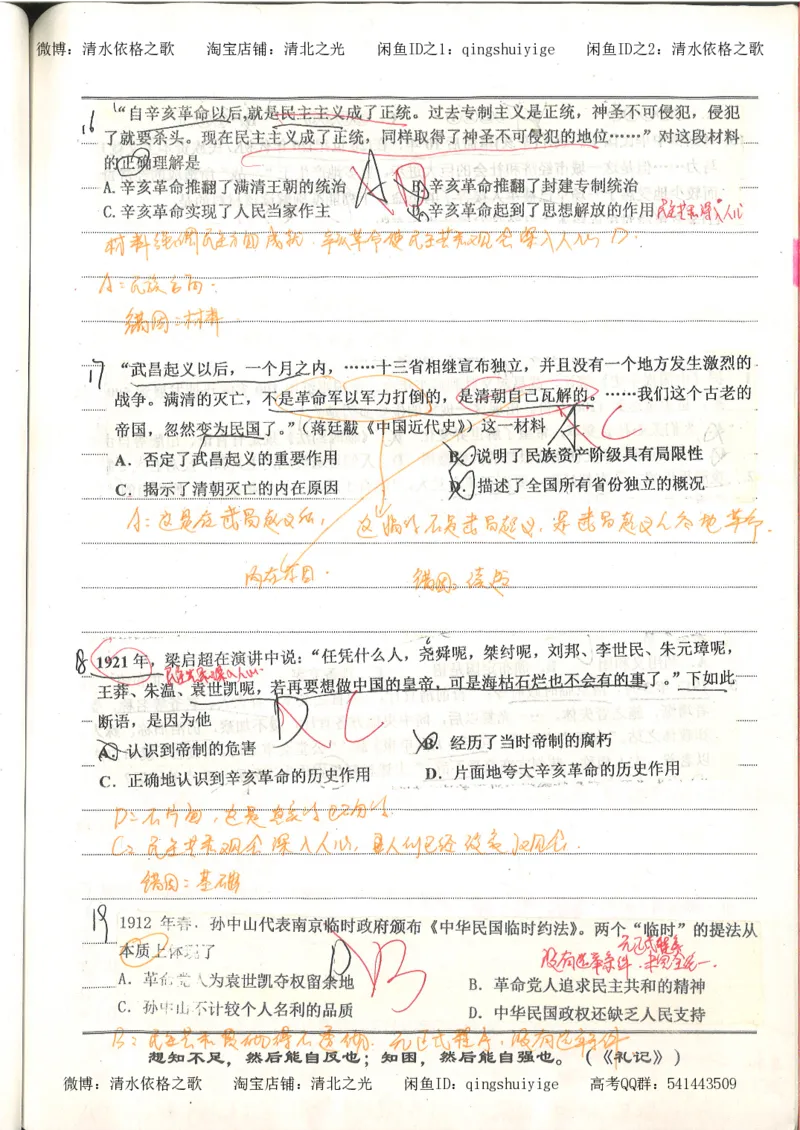 微博：清水依格之歌 淘宝店铺：清北之光 闲鱼ID之1：qingshuiyige 闲鱼ID之2：清水依格之歌
16 “自辛亥革命以后,就是民主主义成了正统。过去专制主义是正统，神圣不可侵犯，侵犯
了就要杀头。现在民主主义成了正统，同样取得了神圣不可侵犯的地位……”对这段材料
的正确理解是
A. 辛亥革命推翻了满清王朝的统治 B. 辛亥革命推翻了封建专制统治
C. 辛亥革命实现了人民当家作主 D. 辛亥革命起到了思想解放的作用 民主共和深入人心
A D
材料强调民主方面成就，辛亥革命使民主共和观念深入人心 D.
A：民族方面；
错因：材料
17 “武昌起义以后，一个月之内，……十三省相继宣布独立，并且没有一个地方发生激烈的
战争。满清的灭亡，不是革命军以军力打倒的，是清朝自己瓦解的。……我们这个古老的
帝国，忽然变为民国了。”(蒋廷黻《中国近代史》)这一材料
A C
A．否定了武昌起义的重要作用 B．说明了民族资产阶级具有局限性
C．揭示了清朝灭亡的内在原因 D．描述了全国所有省份独立的概况
A：这是在武昌起义后，
内在原因．
错因：读题
18 1921 年，梁启超在演讲中说：“任凭什么人，尧舜呢，桀纣呢，刘邦、李世民、朱元璋呢，
民主共和深入人心
王莽、朱温、袁世凯呢，若再要想做中国的皇帝，可是海枯石烂也不会有的事了。”下如此
断语，是因为他
D C
A．认识到帝制的危害 B．经历了当时帝制的腐朽
C．正确地认识到辛亥革命的历史作用 D．片面地夸大辛亥革命的历史作用
D：不片面，这是
C：民主共和观念深入人心，
错因：基础
19 1912 年春，孙中山代表南京临时政府颁布《中华民国临时约法》。两个“临时”的提法从
本质上体现了
D B
无正式程序
没有选举条件
A．革命党人为袁世凯夺权留余地 B．革命党人追求民主共和的精神
C．孙中山不计较个人名利的品质 D．中华民国政权还缺乏人民支持
无正式程序，没有选举条件
想知不足，然后能自反也；知困，然后能自强也。（《礼记》）
微博：清水依格之歌 淘宝店铺：清北之光 闲鱼ID：qingshuiyige 高考QQ群：541443509